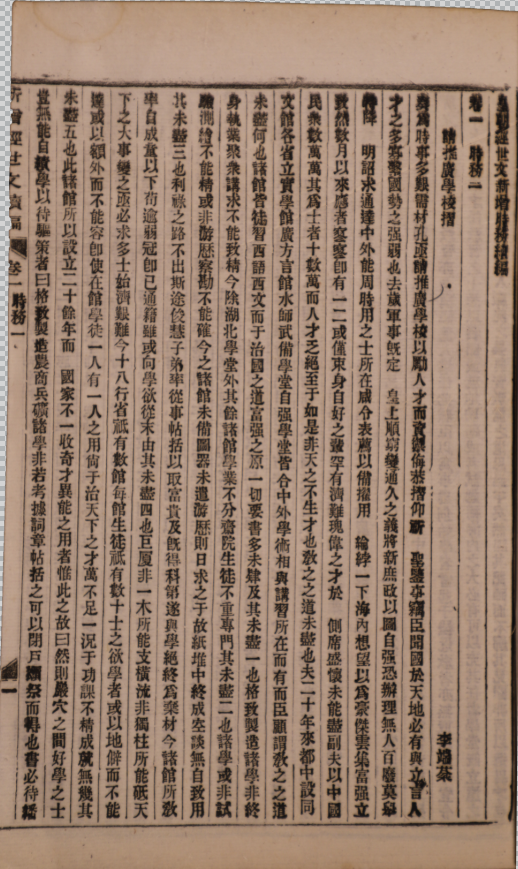 皇朝經世文新增時務續編
卷一　時務一
請推廣學校摺　李端棻
奏為時事多艱需材孔亟請推廣學校以勵人才而資禦侮恭摺仰祈　聖鑒事竊臣聞國於天地必有與立言人
才之多寡繫國勢之强弱也去歲軍事既定　皇上順窮變通久之義將新庶政以圖自强恐辦理無人百廢莫舉
特降　明詔求通達中外能周時用之士所在咸令表薦以備擢用　綸綍一下海內想望以為豪傑雲集富强立
致然數月以來應者寥寥即有一二或僅束身自好之輩罕有濟難瑰偉之才於　側席盛懷未能盡副夫以中國
民衆數萬萬其為士者十數萬而人才乏絕至于如是非天之不生才也教之之道未盡也夫二十年來都中設同
文館各省立實學館廣方言館水師武備學堂自强學堂皆合中外學術相與講習所在而有而臣顧謂教之之道
未盡何也諸館皆徒習西語西文而于治國之道富强之原一切要書多未肄及其未盡一也格致製造諸學非終
身執業聚衆講求不能致精今除湖北學堂外其餘諸館學業不分齋院生徒不重專門其未盡二也諸學或非試
驗測繪不能精或非游歷察勘不能確今之諸館未備圖器未遣游歷則日求之于故紙堆中終成空談無自致用
其未盡三也利祿之路不出斯途俊慧子弟率從事帖括以取富貴及既得科第遂與學絕終為棄材今諸館所教
率自成童以下苟逾弱冠即已通籍雖或向學欲從末由其未盡四也巨厦非一木所能支橫流非獨柱所能砥天
下之大事變之亟必求多士始濟艱難今十八行省祗有數館每館生徒祗有數十士之欲學者或以地僻而不能
達或以額外而不能容即使在館學徒一人有一人之用尚于治天下之才萬不足一況于功課不精成就無幾其
未盡五也此諸館所以設立二十餘年而　國家不一收奇才異能之用者惟此之故曰然則巖穴之間好學之士
豈無能自績學以待驅策者曰格致製造農商兵礦諸學非若考據詞章帖括之可以閉戶獺祭而得也書必待繙
新增經世文續編　卷一　時務一　一